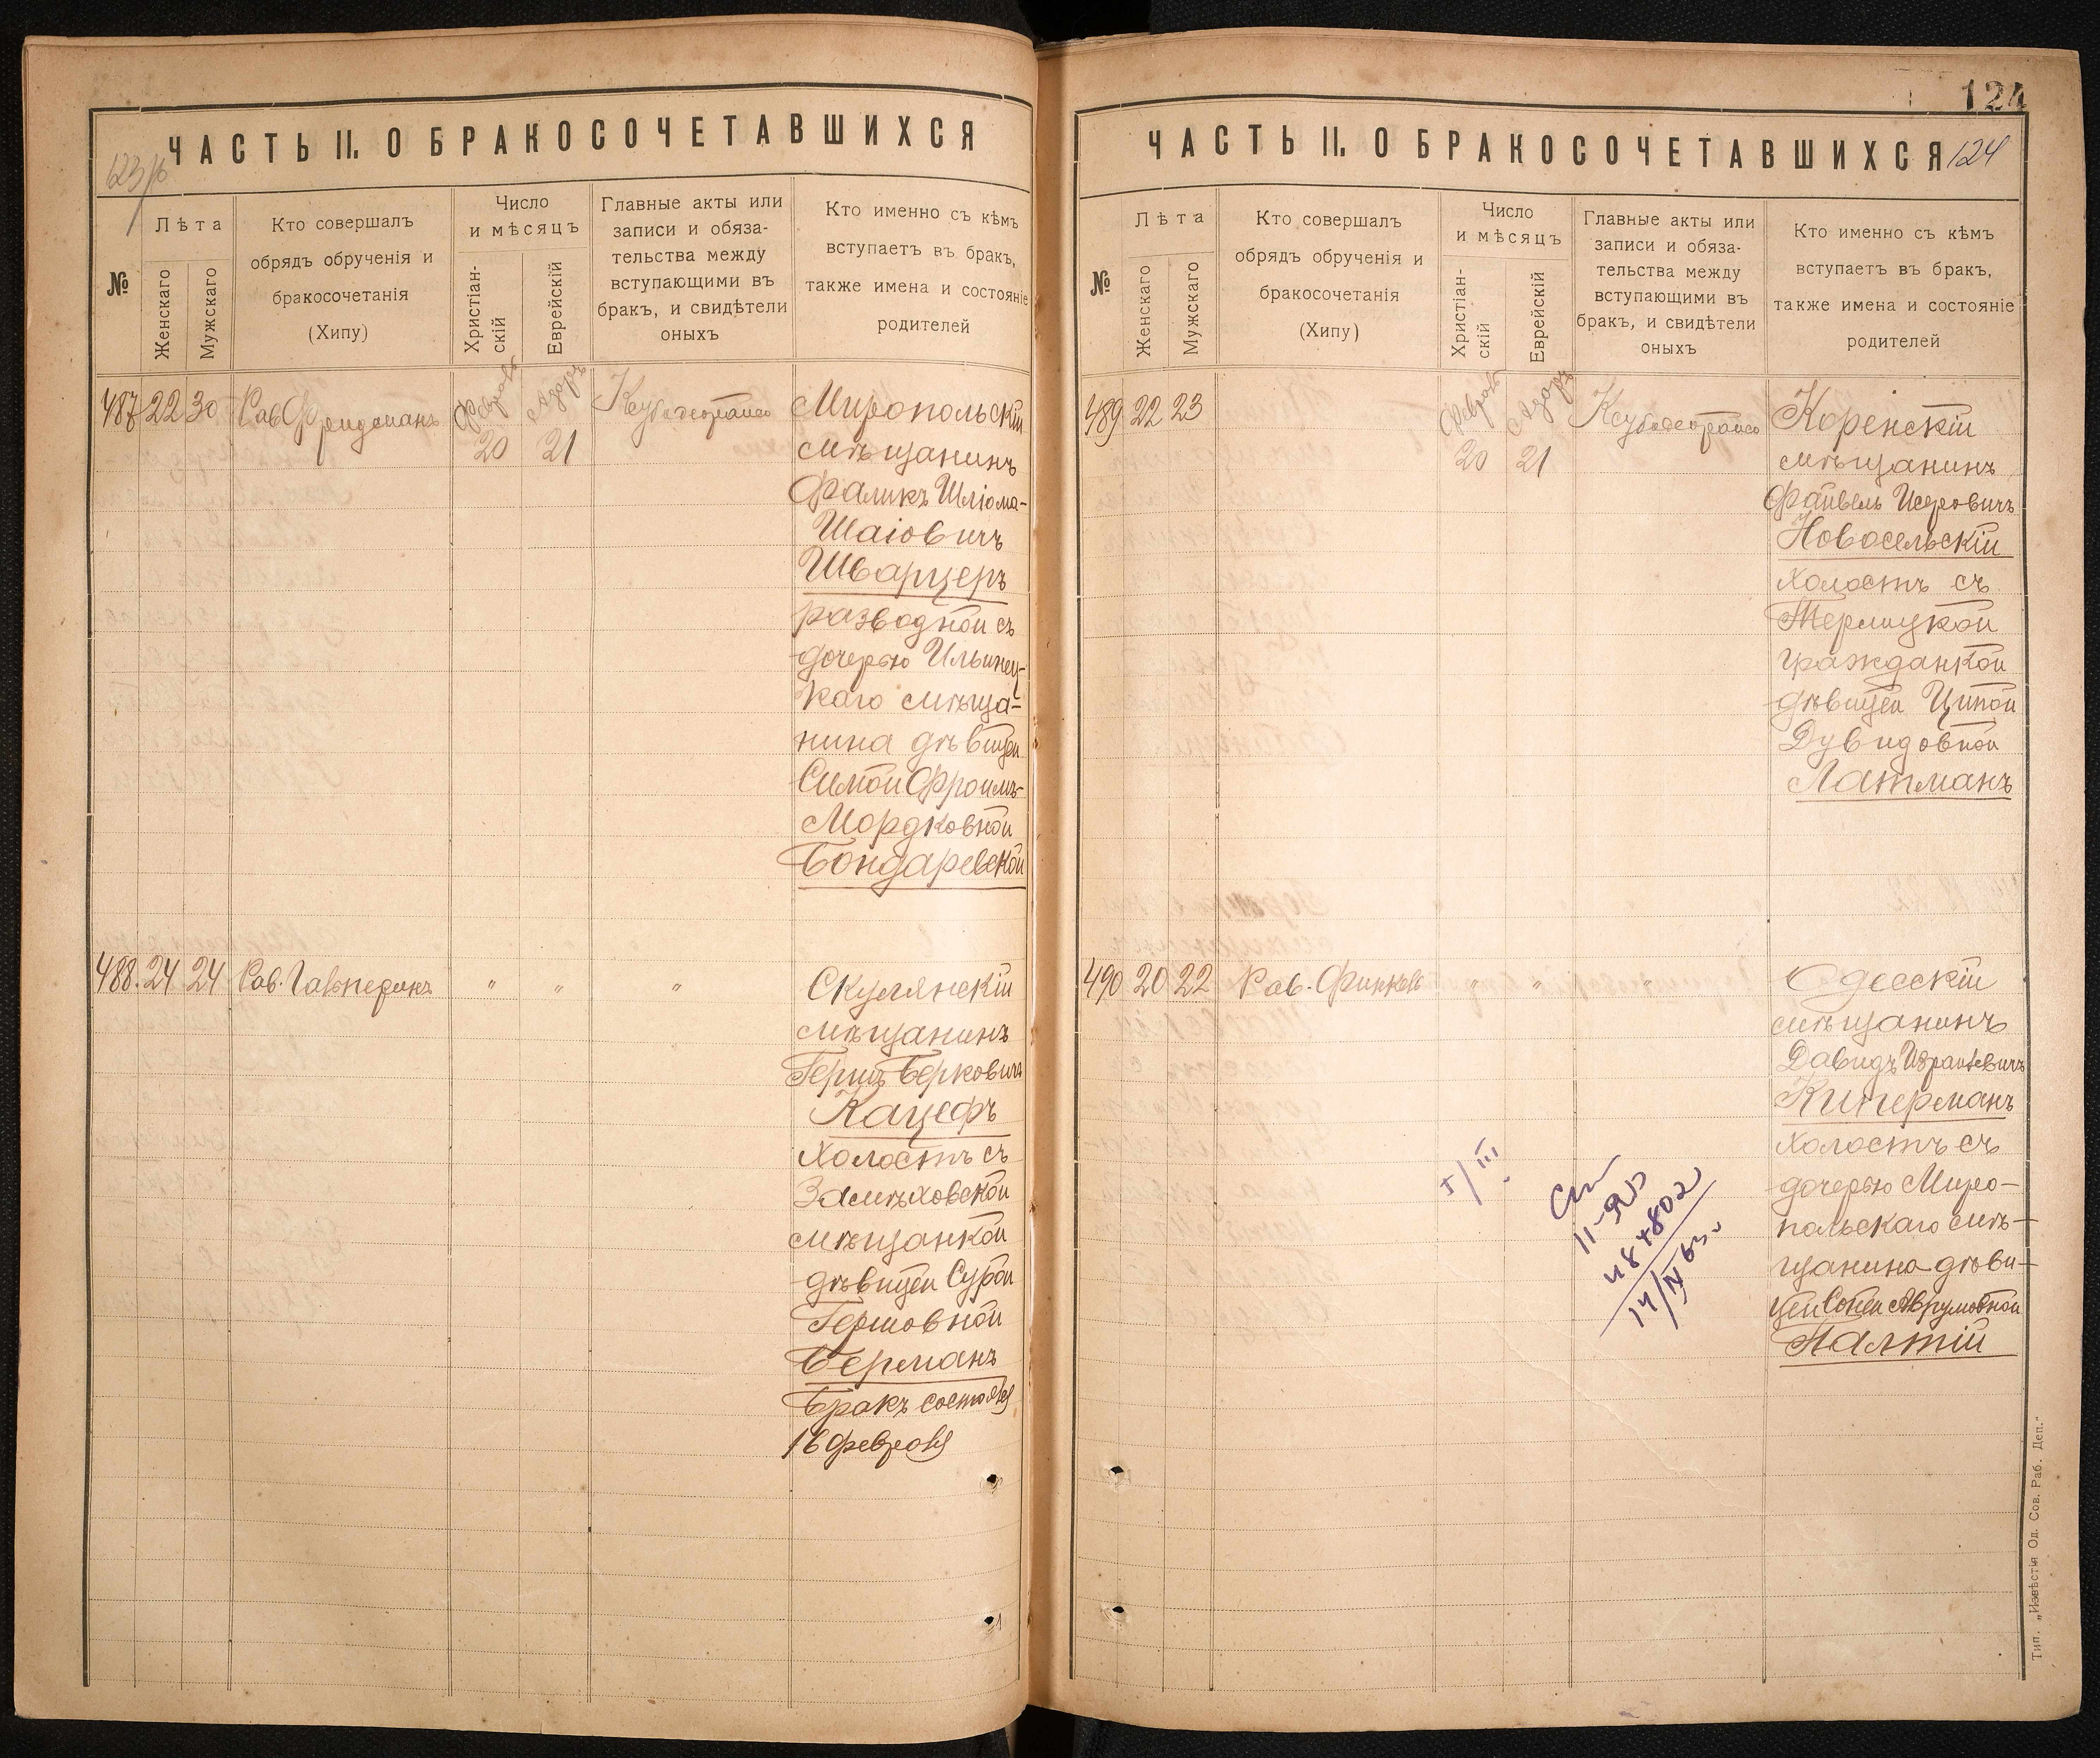 123/об
ЧАСТЬ II. О БРАКОСОЧЕТАВШИХСЯ
№
Лѣта
Женскаго
Мужскаго
Кто совершалъ
обрядъ обрученія и
бракосочетанія
(Хипу)
Число
и мѣсяцъ
Христіан-
скій
Еврейскій
Главные акты или
записи и обяза-
тельства между
вступающими въ
бракъ, и свидѣтели
оныхъ
Кто именно съ кѣмъ
вступаетъ въ бракъ,
также имена и состояніе
родителей
487 22 30 Рав. Фридманъ Февраль 20 Адаръ 21
Миропольскій
мѣщанинъ
Фаликъ Шліома-
Шаіовичъ
Шварцеръ
разводной съ
дочерью Ильинец-
каго мѣща-
нина дѣвицей
Симой Фроимъ-
Мордковной
Бондаревской
488. 24 24 Рав. Гальперинъ " " "
Скулянскій
мѣщанинъ
Гершъ Берковичъ
Кацефъ
холостъ съ
Замѣховской
мѣщанкой
дѣвицей Сурой
Гершовной
Берманъ
Бракъ состоялся
16 февраля
124
ЧАСТЬ II. О БРАКОСОЧЕТАВШИХСЯ 124
№
Лѣта
Женскаго
Мужскаго
Кто совершалъ
обрядъ обрученія и
бракосочетанія
(Хипу)
Число
и мѣсяцъ
Христіан-
скій
Еврейскій
Главные акты или
записи и обяза-
тельства между
вступающими въ
бракъ, и свидѣтели
оныхъ
Кто именно съ кѣмъ
вступаетъ въ бракъ,
также имена и состояніе
родителей
489 22 23 Февраль 20 Адаръ 21
Коренскій
мѣщанинъ
Файвель Исеровичъ
Новосельскій
холостъ съ
гражданкой
дѣвицей Ципой
Дувидовной
Латманъ
490 20 22 Рав. " " "
Одесскій
мѣщанинъ
Давидъ Израилевичъ
Киперманъ
холостъ съ
дочерью Миро-
польскаго мѣ-
щанина дѣви-
цей Соней Аврумовной
Палтій
I/III
14/IV 63
Тип. „Извѣстія Од. Сов. Раб. Деп."